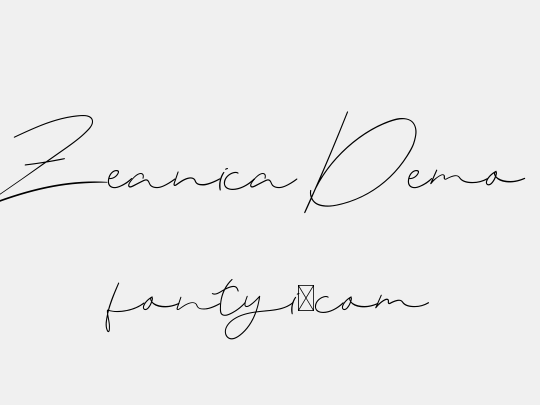 Zeanica Demo
fontyi☒com